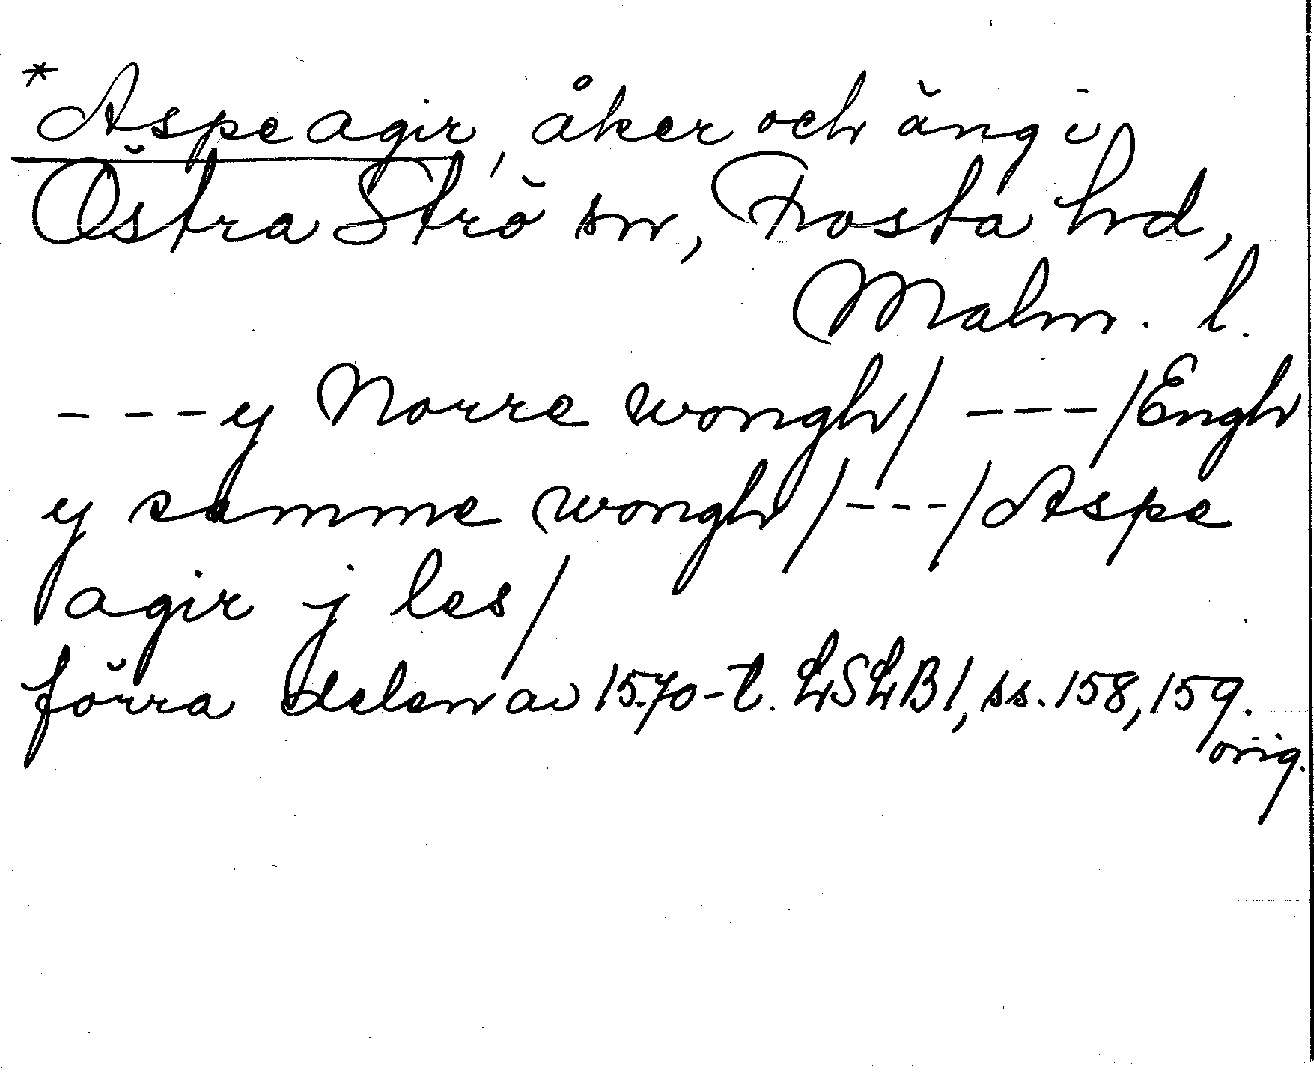 *Aspe agir, åker och äng i
Östra Strö sn, Frosta hd,
Malm. l.
---y Norre wongh/ ---/Engh
y samme wongh/---/Aspe
agir j les/
förra delen av 1570-t. LSLB1, ss. 158, 159.
orig.